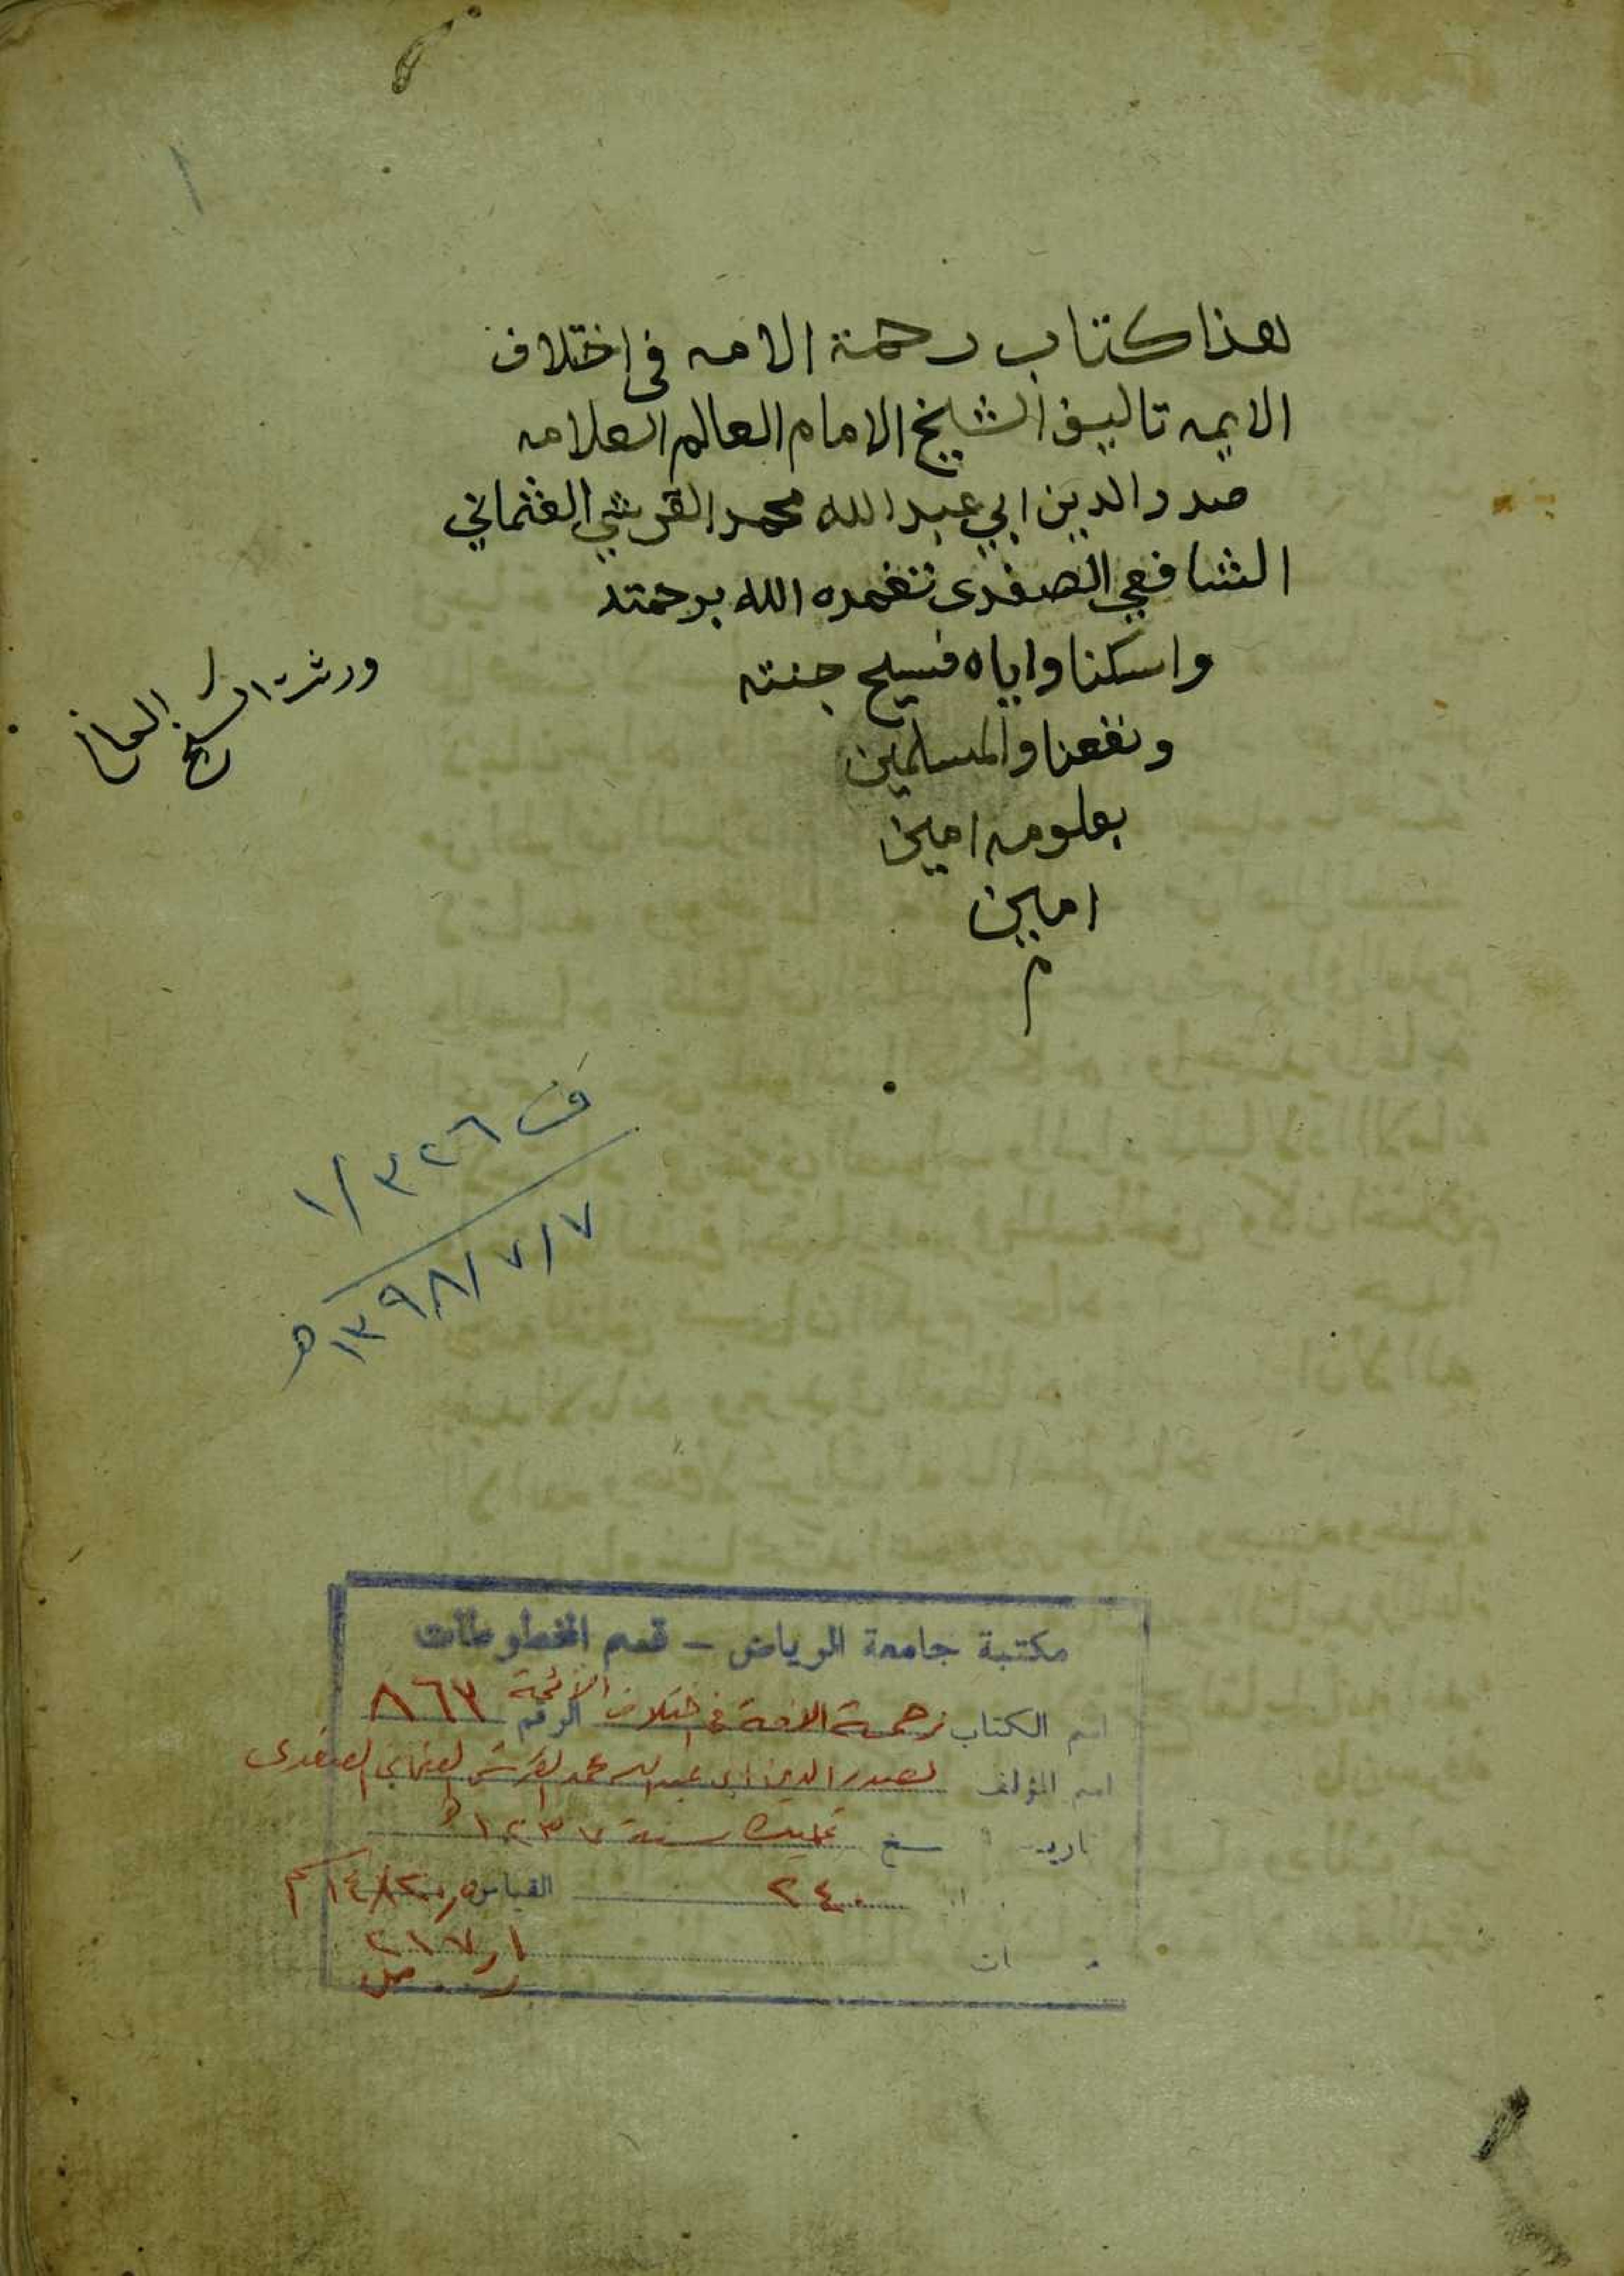 هذا كتاب رحمة الامه في اختلاف
الايمه تاليف الشيخ الامام العالم العلامه
صدر الدين ابي عبد الله محمد القرشي العثماني
الشافعي الصفدى تغمده الله برحمته
واسكنا واياه فسيح جنته
ونفعنا والمسلمين
بعلومه امين
امين
م
ورثة الشيخ
ف ٣٢٦ / ١
١٣٩٨/٧/٧ هـ
١
مكتبة جامعة الرياض - قسم المخطوطات
اسم الكتاب رحمة الامة في اختلاف الائمة الرقم ٨٦٣
اسم المؤلف لصدر الدين ابى عبد الله محمد القرشي العثماني الصفدى
سنة ١٢٣٧ هـ
٢٤٠ القياس
٢١٧